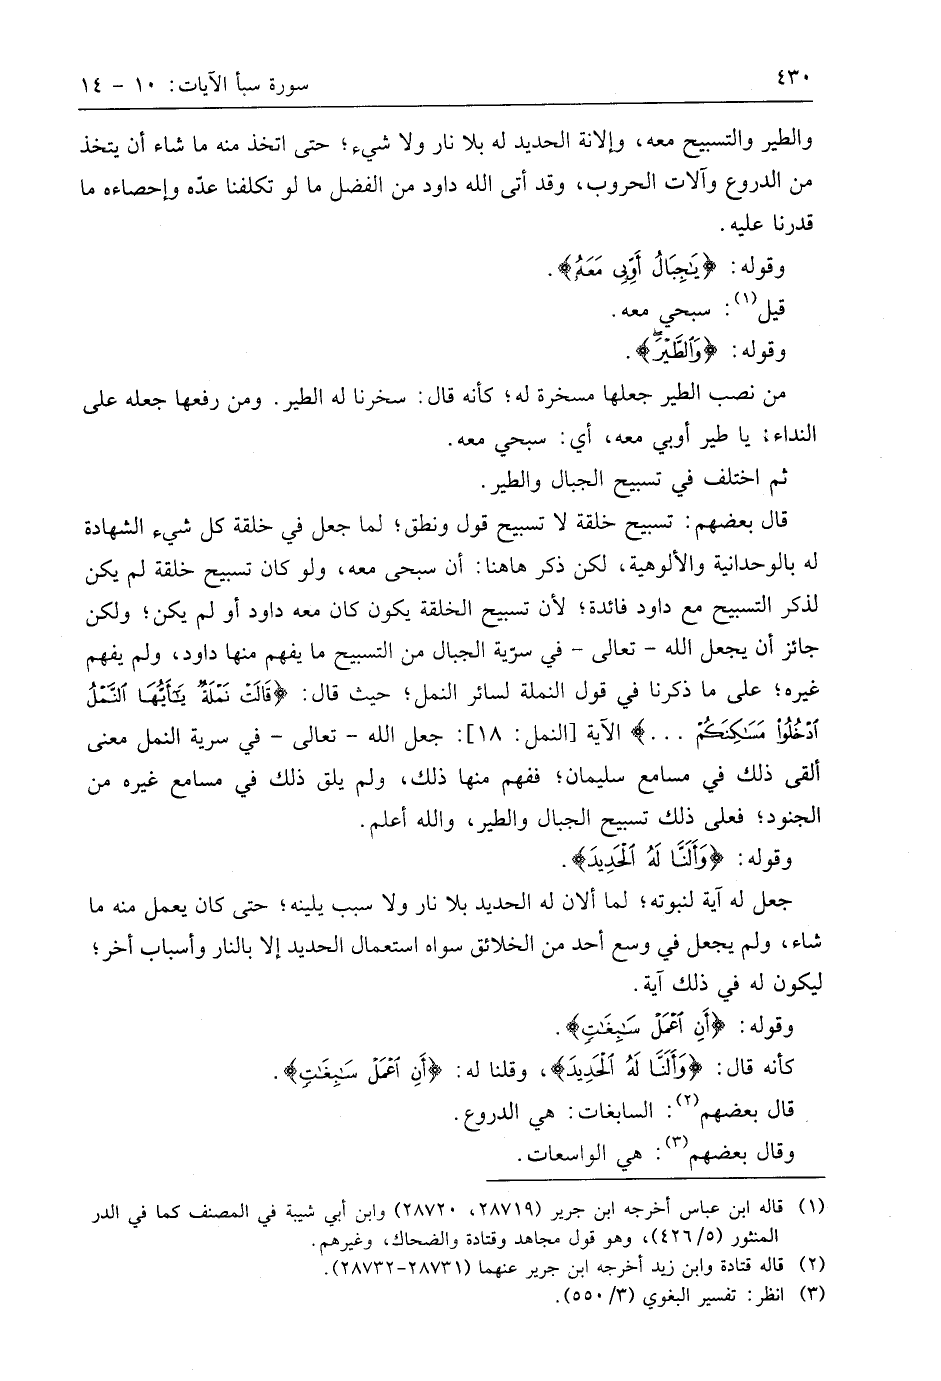 ٤٣٠
سورة سبأ الآيات: ١٠ - ١٤
والطير والتسبيح معه، وإلانة الحديد له بلا نار ولا شيء؛ حتى اتخذ منه ما شاء أن يتخذ
من الدروع وآلات الحروب، وقد أتى الله داود من الفضل ما لو تكلفنا عدّه وإحصاءه ما
قدرنا عليه.
وقوله: ﴿يَٰجِبَالُ أَوِّبِى مَعَهُۥ﴾.
قيل(١): سبحي معه.
وقوله: ﴿وَٱلطَّيۡرَۖ﴾.
من نصب الطير جعلها مسخرة له؛ كأنه قال: سخرنا له الطير. ومن رفعها جعله على
النداء: يا طير أوبي معه، أي: سبحي معه.
ثم اختلف في تسبيح الجبال والطير.
قال بعضهم: تسبيح خلقة لا تسبيح قول ونطق؛ لما جعل في خلقة كل شيء الشهادة
له بالوحدانية والألوهية، لكن ذكر هاهنا: أن سبحى معه، ولو كان تسبيح خلقة لم يكن
لذكر التسبيح مع داود فائدة؛ لأن تسبيح الخلقة يكون كان معه داود أو لم يكن؛ ولكن
جائز أن يجعل الله - تعالى - في سرّية الجبال من التسبيح ما يفهم منها داود، ولم يفهم
غيره؛ على ما ذكرنا في قول النملة لسائر النمل؛ حيث قال: ﴿قَالَتۡ نَمۡلَةٌ يَٰٓأَيُّهَا ٱلنَّمۡلُ
ٱدۡخُلُواْ مَسَٰكِنَكُمۡ ...﴾ الآية [النمل: ١٨]: جعل الله - تعالى - في سرية النمل معنى
ألقى ذلك في مسامع سليمان؛ ففهم منها ذلك، ولم يلق ذلك في مسامع غيره من
الجنود؛ فعلى ذلك تسبيح الجبال والطير، والله أعلم.
وقوله: ﴿وَأَلَنَّا لَهُ ٱلۡحَدِيدَ﴾.
جعل له آية لنبوته؛ لما ألان له الحديد بلا نار ولا سبب يلينه؛ حتى كان يعمل منه ما
شاء، ولم يجعل في وسع أحد من الخلائق سواه استعمال الحديد إلا بالنار وأسباب أخر؛
ليكون له في ذلك آية.
وقوله: ﴿أَنِ ٱعۡمَلۡ سَٰبِغَٰتٖ﴾.
كأنه قال: ﴿وَأَلَنَّا لَهُ ٱلۡحَدِيدَ﴾، وقلنا له: ﴿أَنِ ٱعۡمَلۡ سَٰبِغَٰتٖ﴾.
قال بعضهم(٢): السابغات: هي الدروع.
وقال بعضهم(٣): هي الواسعات.
(١) قاله ابن عباس أخرجه ابن جرير (٢٨٧١٩، ٢٨٧٢٠) وابن أبي شيبة في المصنف كما في الدر
المنثور (٤٢٦/٥)، وهو قول مجاهد وقتادة والضحاك، وغيرهم.
(٢) قاله قتادة وابن زيد أخرجه ابن جرير عنهما (٢٨٧٣١-٢٨٧٣٢).
(٣) انظر: تفسير البغوي (٥٥٠/٣).